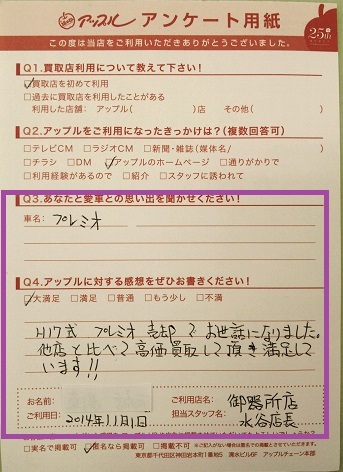 アップル アンケート用紙
25th
この度は当店をご利用いただきありがとうございました。
Q1.買取店利用について教えて下さい!
☑買取店を初めて利用
□過去に買取店を利用したことがある
利用した店舗: アップル( )店 その他( )
Q2.アップルをご利用になったきっかけは?(複数回答可)
□テレビCM □ラジオCM □新聞・雑誌(媒体名/ )
□チラシ □DM ☑アップルのホームページ □通りがかりで
□利用経験があるので □紹介 □スタッフに誘われて
Q3.あなたと愛車との思い出を聞かせください!
車名: プレミオ
Q4.アップルに対する感想をぜひお書きください!
☑大満足 □満足 □普通 □もう少し □不満
H17式 プレミオ売却でお世話になりました。
他店と比べて高価買取して頂き満足して
います!!
お名前:
ご利用日: 2014年11月1日
ご利用店名: 御器所店
担当スタッフ名: 水谷店長
□実名で掲載可 ☑匿名なら掲載可 □掲載不可
東京都千代田区神田岩本町1番地5 清水ビル6F アップルチェーン本部